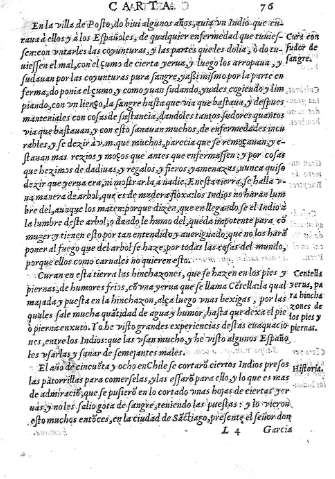 CARTA. 76
En la villa de Posto, do biui algunos años, auia vn Indio que cu-
raua a ellos y à los Españoles, de qualquier enfermedad que tuuies-
sen: con vntarles las coyunturas, y las partes que les dolia, ò do tu-
uiessen el mal, con el çumo de cierta yerua, y luego los arropaua, y
sudauan por las coyunturas pura sangre, y assi mismo por la parte en
ferma, do ponia el çumo, y como yuan sudando, yua les cogiendo y lim
piando, con vn lienço, la sangre hasta que via que bastaua, y despues
mantenialos con cosas de sustancia, dandoles tantos sudores quantos
via que bastauan, y con esto sanauan muchos, de enfermedades incu
rables, y se dezir à v. m. que muchos, parecia que se remoçauan, y e-
stauan mas rezios y moços que antes que enfermassen: y por cosas
que hezimos de dadiuas, y regalos, y fieros, y amenazas, nunca quiso
dezir que yerua era, ni mostrarla à nadie. En esta tierra, se halla v-
na manera de arbol, que es de madera floxa: los Indios no haran lum
bre del, aunque los maten: porque dizen, que en llegando se el Indio à
la lumbre deste arbol, o dandole humo del, queda impotente para cō
muger: y tienen esto por tan entendido y aueriguado, que no los hará
poner al fuego que del arbol se haze, por todas las cosas del mundo,
porque ellos como carnales no quieren esto.
Curan en esta tierra las hinchazones, que se hazen en los pies y
piernas, de humores frios, cō vna yerua que se llama Cētella: la qual
majada y puesta en la hinchazon, alça luego vnas bexigas, por las
quales sale mucha quātidad de agua y humor, hasta que dexa el pie
o pierna enxuto. Yo he visto grandes experiencias destas euaquacio
nes, entre los Indios: que las vsan mucho, y he visto algunos Españo
les vsarlas y sanar de semejantes males.
El año de cincuēta y ocho en Chile se cortarō ciertos Indios presos
las pātorrillas para comerselas, y las assarō para ello, y lo que es mas
de admiraciō, que se pusierō en lo cortado vnas hojas de ciertas yer
uas, y no les salio gota de sangre, teniendo las puestas: y lo vieron
esto muchos entōces, en la ciudad de Sāctiago, presente el señor don
L 4 Garcia
Cura cō
sudor de
sangre.
Centella
yerua, pa
ra hincha
zones de
los pies y
piernas.
Historia.